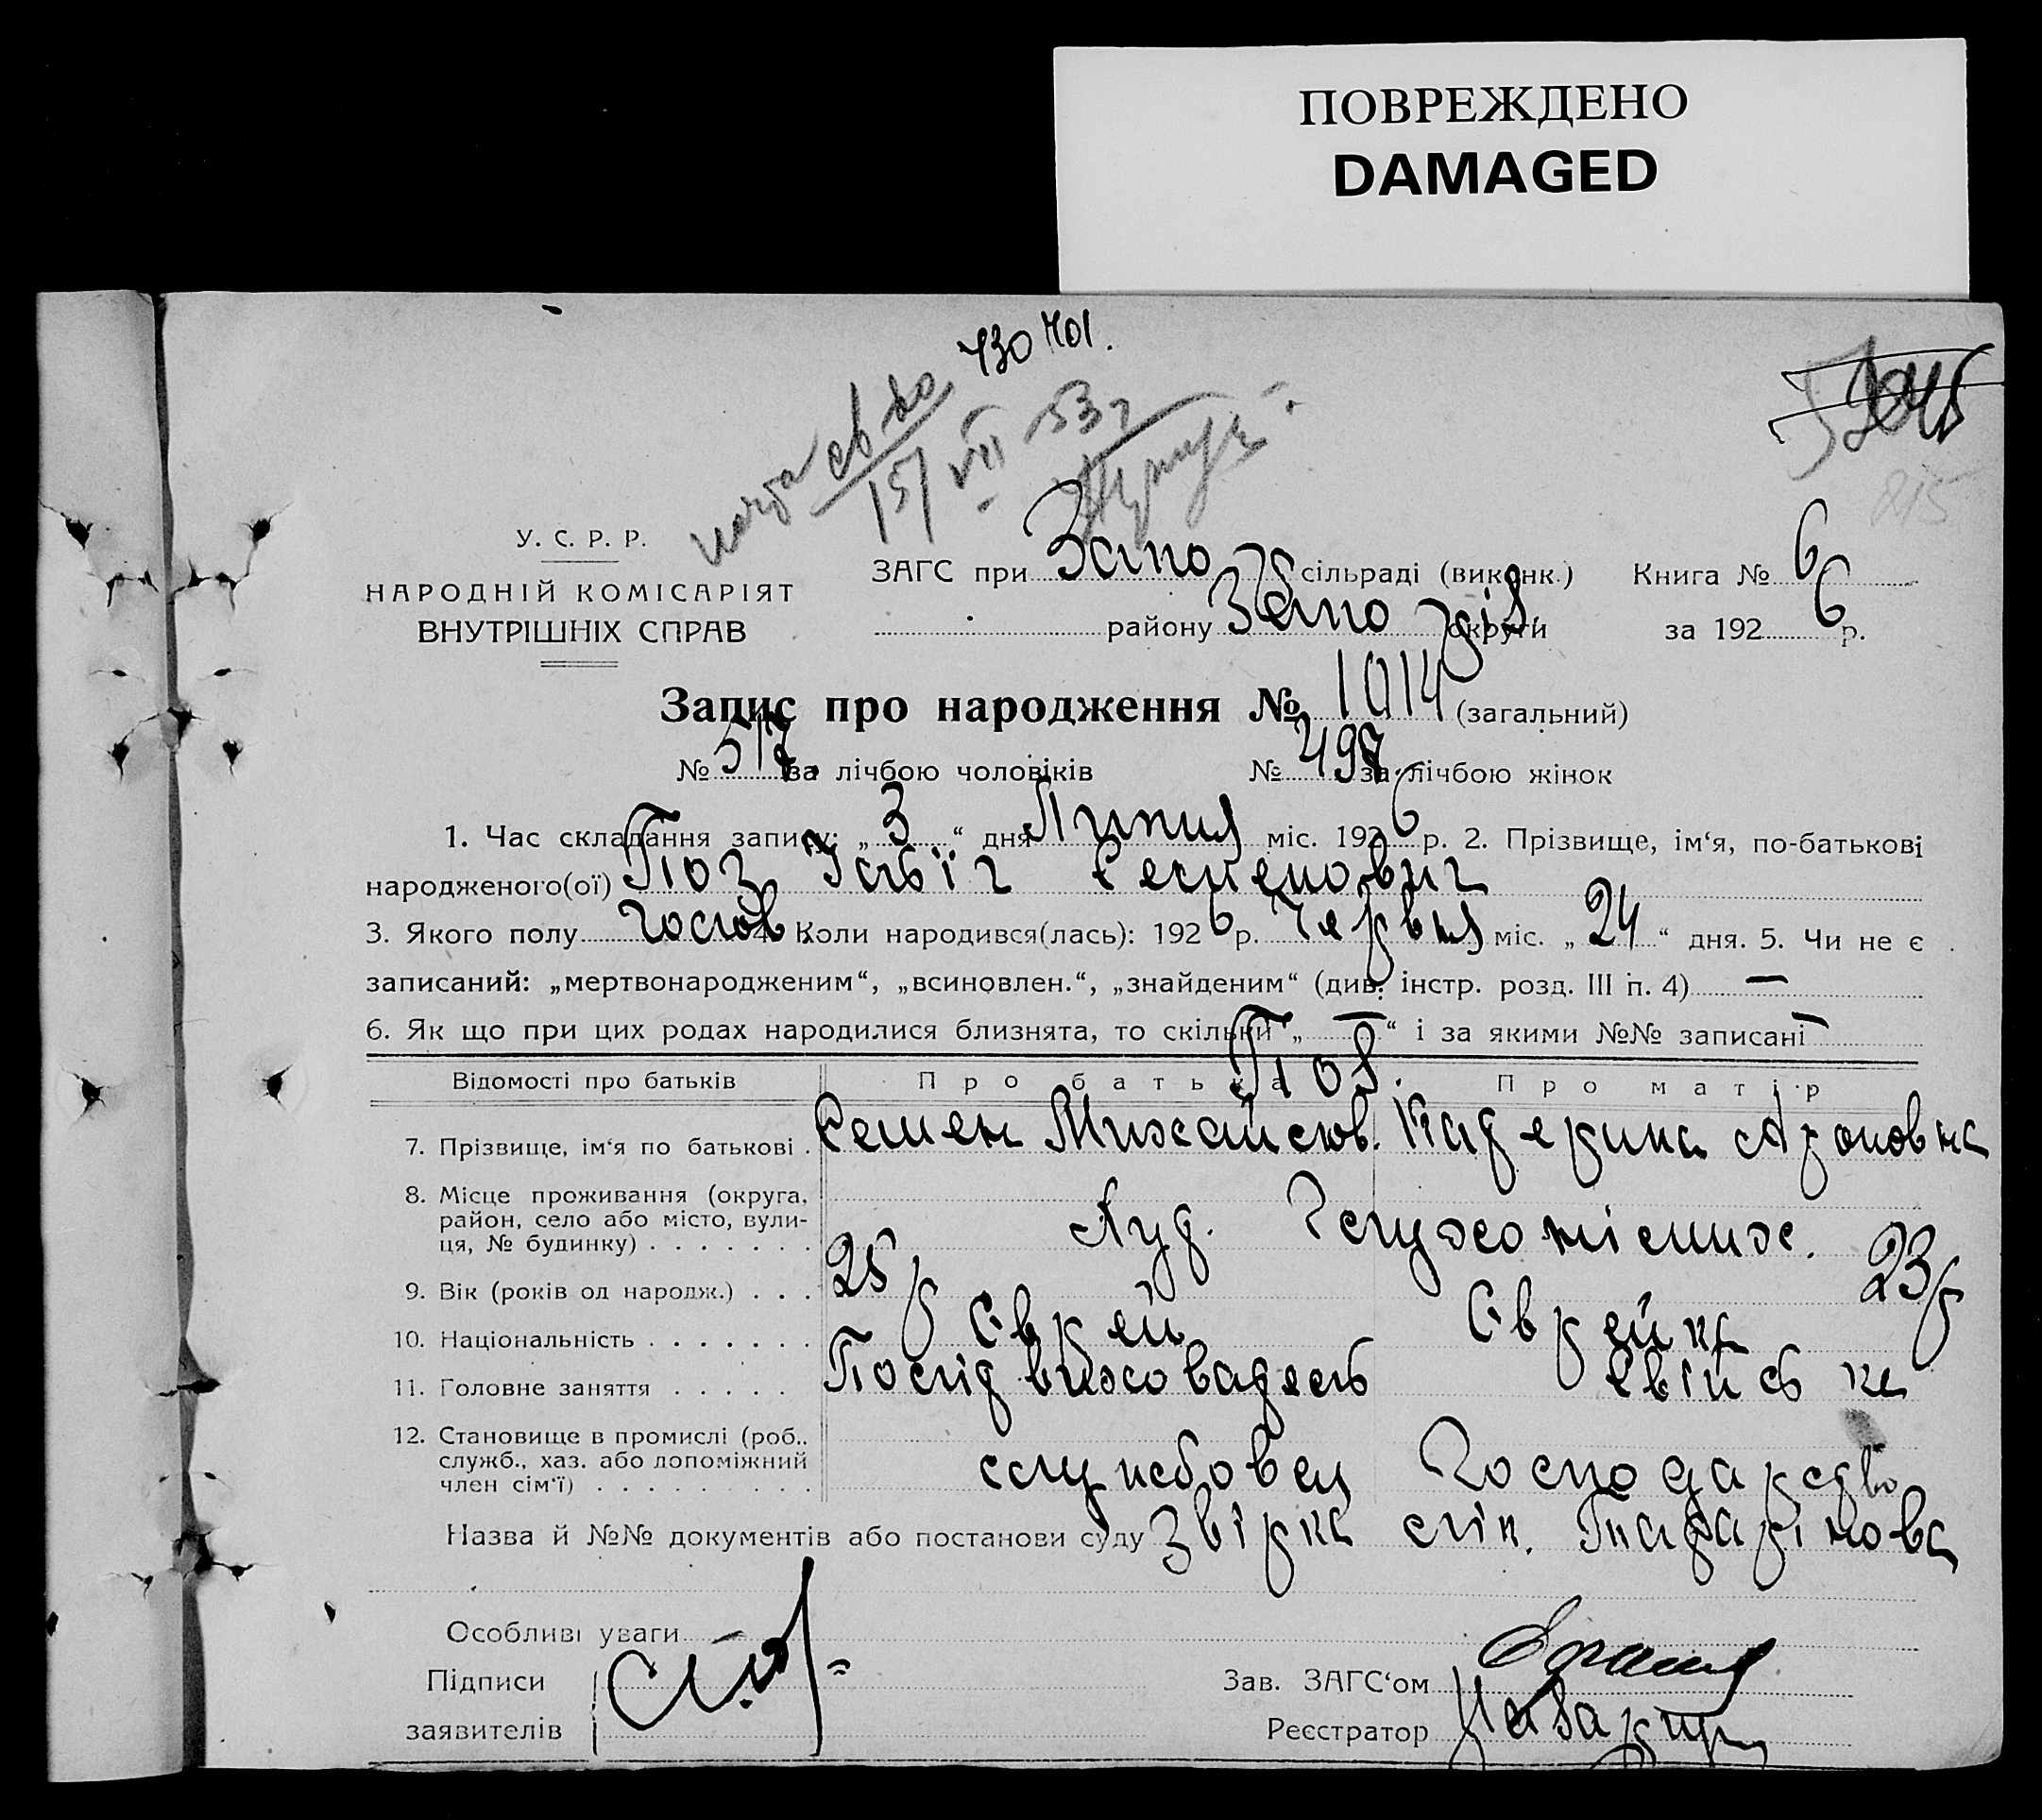 ПОВРЕЖДЕНО
DAMAGED
430401.
15/VII-53г
У. С. Р. Р.
НАРОДНІЙ КОМІСАРІЯТ
ВНУТРІШНІХ СПРАВ
ЗАГС при Запо сільраді (виконк.) Книга № 6
району Запо округи за 192 6 р.
Запис про народження № 1014 (загальний)
№ 517 за лічбою чоловіків № 497 за лічбою жінок
1. Час складання запису: „ 3 “ дня Липня міс. 192 6 р. 2. Прізвище, ім‘я, по-батькові
народженого(ої) Семенович
3. Якого полу чолов 4. Коли народився(лась): 192 6 р. Червня міс. „ 24 “ дня. 5. Чи не є
записаний: „мертвонародженим“, „всиновлен.“, „знайденим“ (див. інстр. розд. III п. 4) —
6. Як що при цих родах народилися близнята, то скільки „ — “ і за якими №№ записані —
Відомості про батьків Про батька Про матір
7. Прізвище, ім‘я по батькові . Семен Михайлов. Катерина Ароновна
8. Місце проживання (округа,
район, село або місто, вули-
ця, № будинку) . . . . . . .
9. Вік (років од народж.) . . . 25 р 23 р
10. Національність . . . . . . . Єврей Єврейка
11. Головне заняття . . . . . Політвихователь Свійське
12. Становище в промислі (роб.,
служб., хаз. або допоміжний
член сім‘ї) . . . . . . . . . службовец Господарство
Назва й №№ документів або постанови суду Звірка
Особливі уваги
Підписи
заявителів
Зав. ЗАГС‘ом
Реєстратор